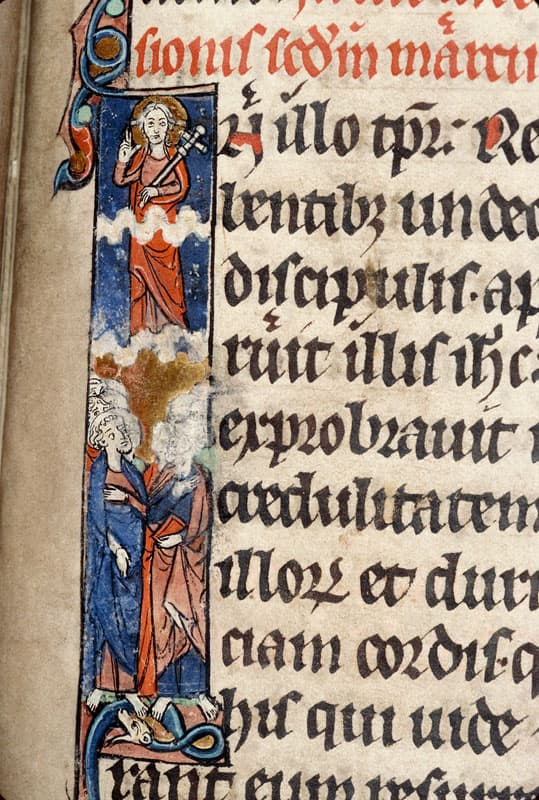 sionis scd'm marcu
In illo tp̄r: Re
bentibꝫ undec
discipulis. ap
ruit illis ih̄c
exprobrauit
credulitatem
illoꝝ et duri
ciam cordis. q
his qui uide
rant eum